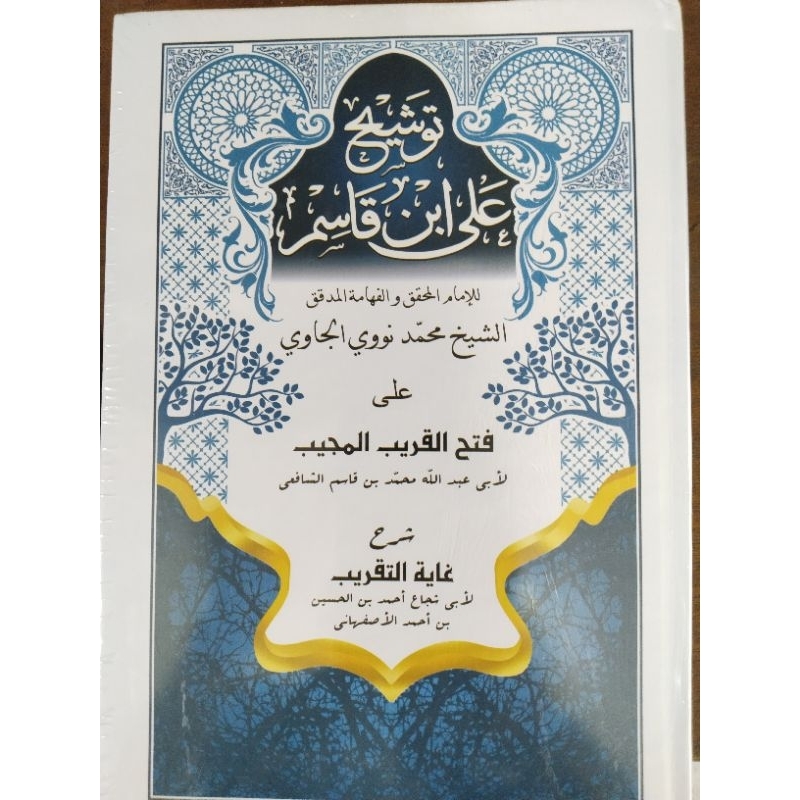 توشيح
على ابن قاسم
للإمام المحقق والفهامة المدقق
الشيخ محمّد نووي الجاوي
على
فتح القريب المجيب
لأبى عبد الله محمّد بن قاسم الشافعى
شرح
غاية التقريب
لأبى شجاع أحمد بن الحسين
بن أحمد الأصفهانى